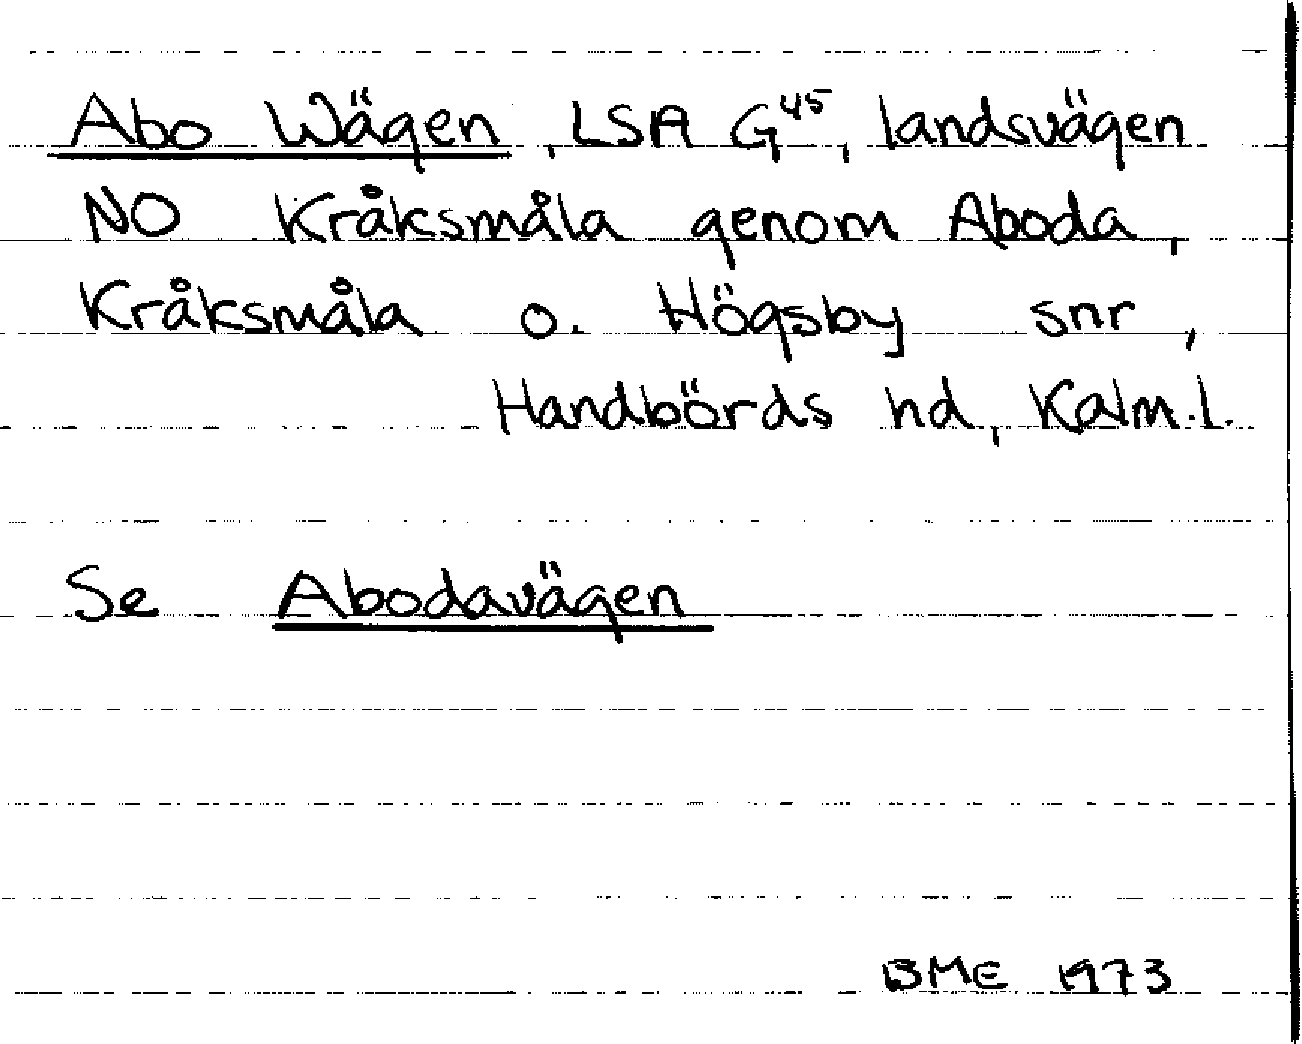 Abo Wägen, LSA G⁴⁵, landsvägen
NO Kråksmåla genom Aboda,
Kråksmåla o. Högsby snr,
Handbörds hd, Kalm.l.
Se Abodavägen
BME 1973